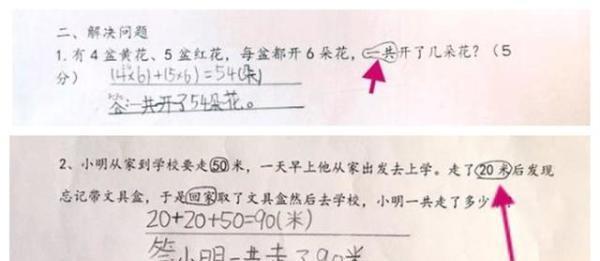 二、解决问题
1. 有4盆黄花、5盆红花，每盆都开6朵花，一共开了几朵花？（5
分）
(4×6)+(5×6)=54(朵)
答：一共开了54朵花。
2、小明从家到学校要走50米，一天早上他从家出发去上学。走了20米后发现
忘记带文具盒，于是回家取了文具盒然后去学校，小明一共走了多少
20+20+50=90(米)
答小明一共走了90米